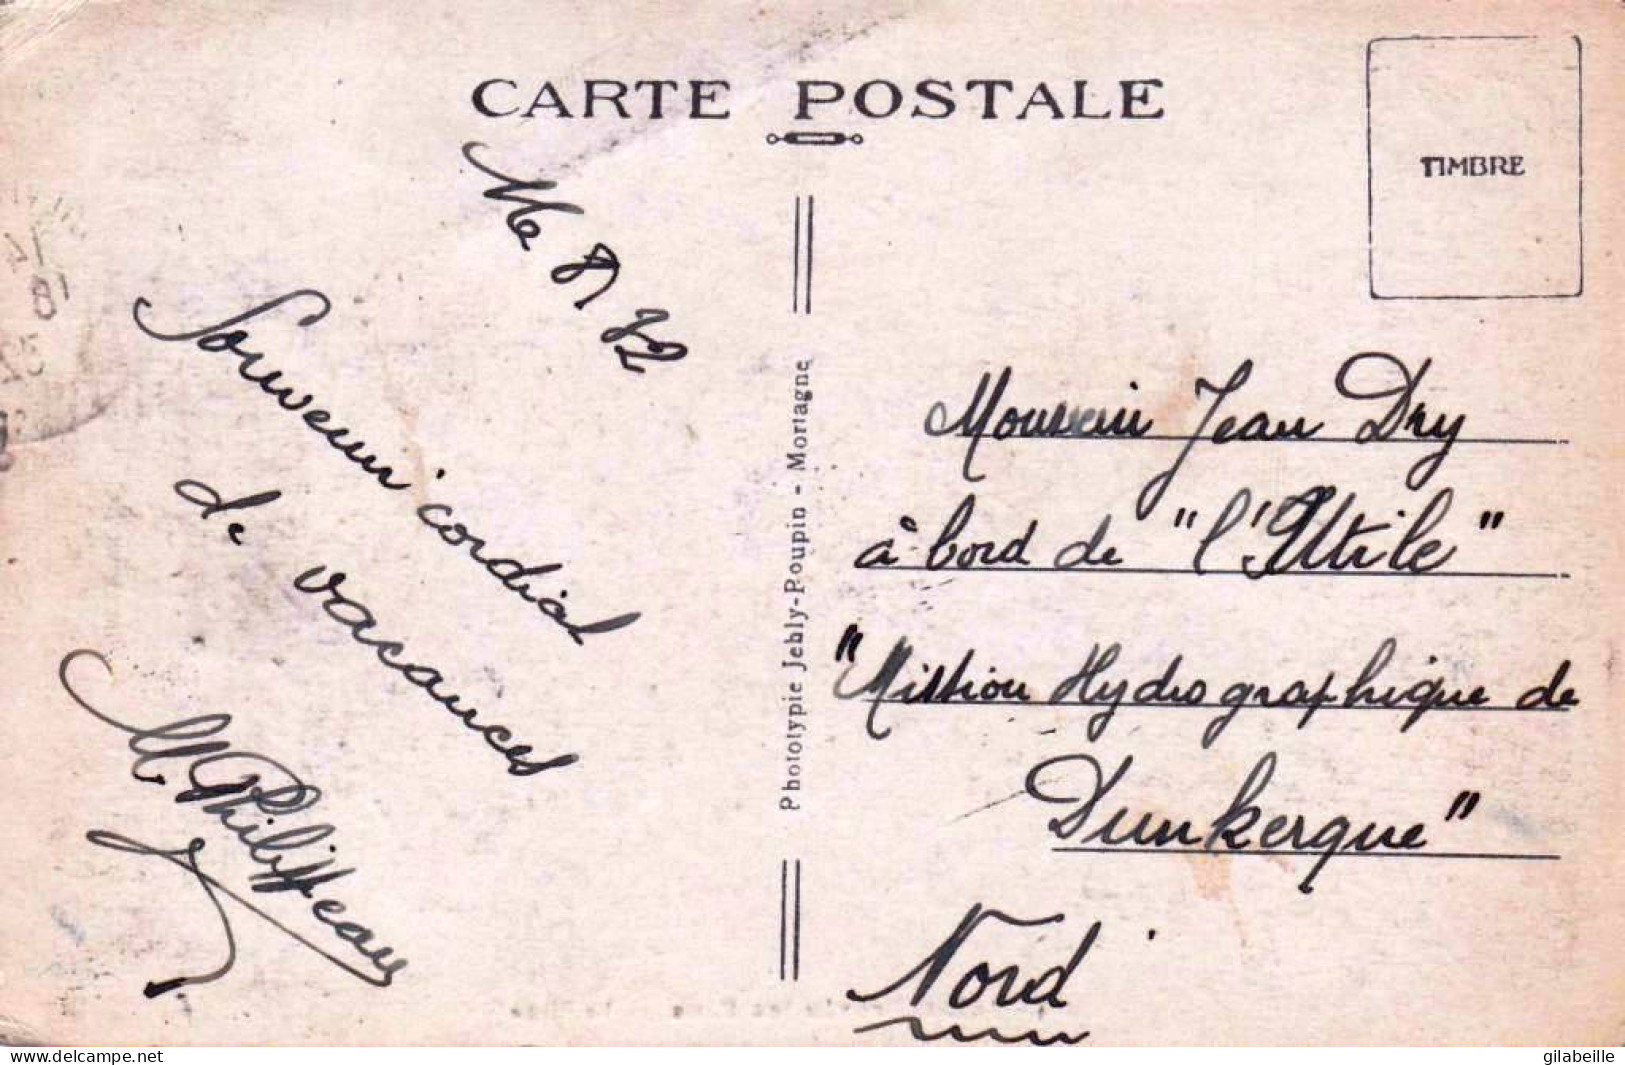 CARTE POSTALE
TIMBRE
Souvenir cordial
de vacances
M Philippeau
Phototypie Jehly-Poupin - Mortagne
Monsieur Jean Dry
à bord de "l'Utile"
"Mission Hydrographique de
Dunkerque"
Nord
www.delcampe.net
gilabeille